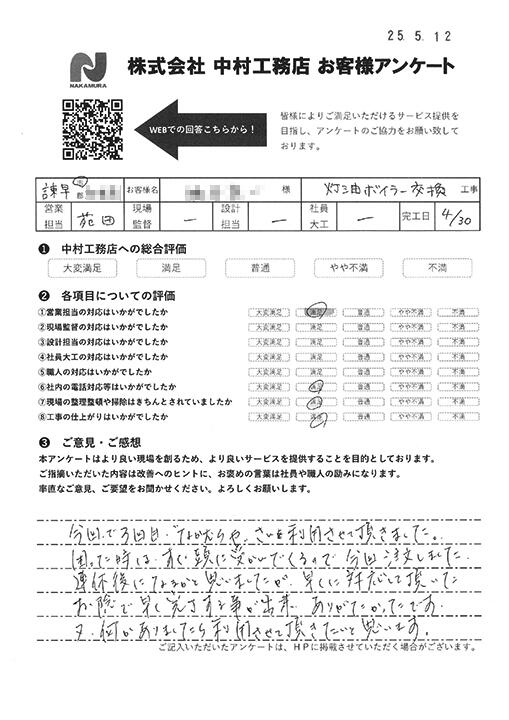 25.5.12
NAKAMURA
株式会社 中村工務店 お客様アンケート
WEBでの回答こちらから!
皆様によりご満足いただけるサービス提供を
目指し、アンケートのご協力をお願い致して
おります。
諫早 市 郡 お客様名 様 灯油ボイラー交換 工事
営業担当 苑田 現場監督 ー 設計担当 ー 社員大工 ー 完工日 4/30
❶ 中村工務店への総合評価
大変満足 満足 普通 やや不満 不満
❷ 各項目についての評価
①営業担当の対応はいかがでしたか 大変満足 満足 普通 やや不満 不満
②現場監督の対応はいかがでしたか 大変満足 満足 普通 やや不満 不満
③設計担当の対応はいかがでしたか 大変満足 満足 普通 やや不満 不満
④社員大工の対応はいかがでしたか 大変満足 満足 普通 やや不満 不満
⑤職人の対応はいかがでしたか 大変満足 満足 普通 やや不満 不満
⑥社内の電話対応等はいかがでしたか 大変満足 満足 普通 やや不満 不満
⑦現場の整理整頓や掃除はきちんとされていましたか 大変満足 満足 普通 やや不満 不満
⑧工事の仕上がりはいかがでしたか 大変満足 満足 普通 やや不満 不満
❸ ご意見・ご感想
本アンケートはより良い現場を創るため、より良いサービスを提供することを目的としております。
ご指摘いただいた内容は改善へのヒントに、お褒めの言葉は社員や職人の励みになります。
率直なご意見、ご要望をお聞かせください。よろしくお願いします。
今回で3回目、"なかむらや"さんを利用させて頂きました。
困った時は、すぐ頭に浮かんでくるので今回注文しました。
連休後になるかと思いましたが、早くに対応して頂いた
お陰で早く完了する事が出来、ありがたかったです。
又、何かありましたら利用させて頂きたいと思います。
ご記入いただいたアンケートは、HPに掲載させていただく場合がございます。